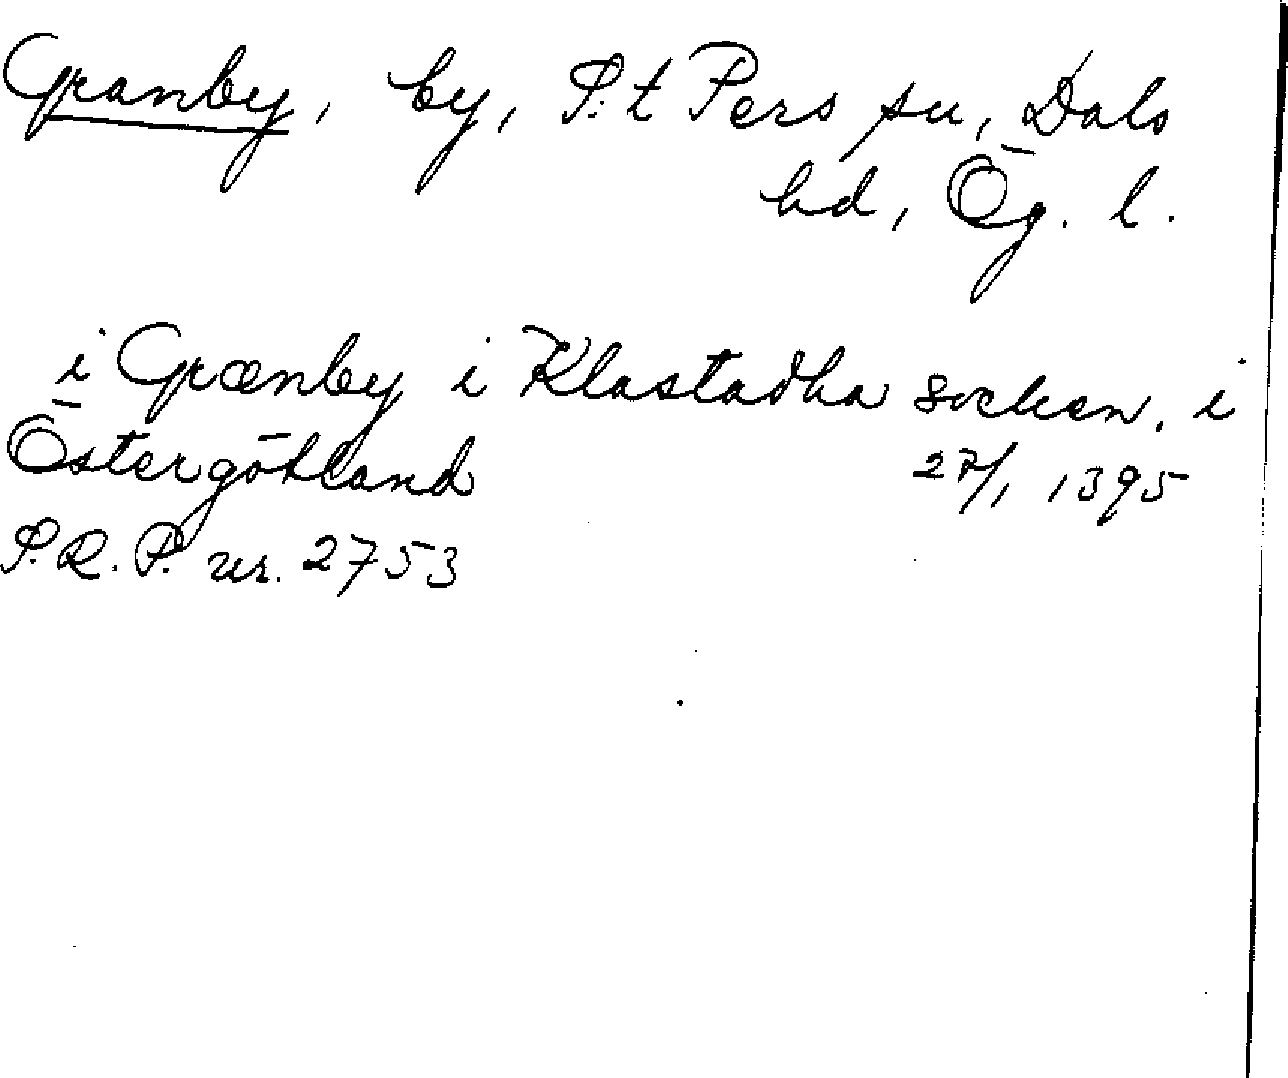 Granby, by, S:t Pers sn, Dals
hd, Ög. l.
i Grænby i Klastadha socken, i
Östergötland 27/1 1395
S.R.P. nr. 2753